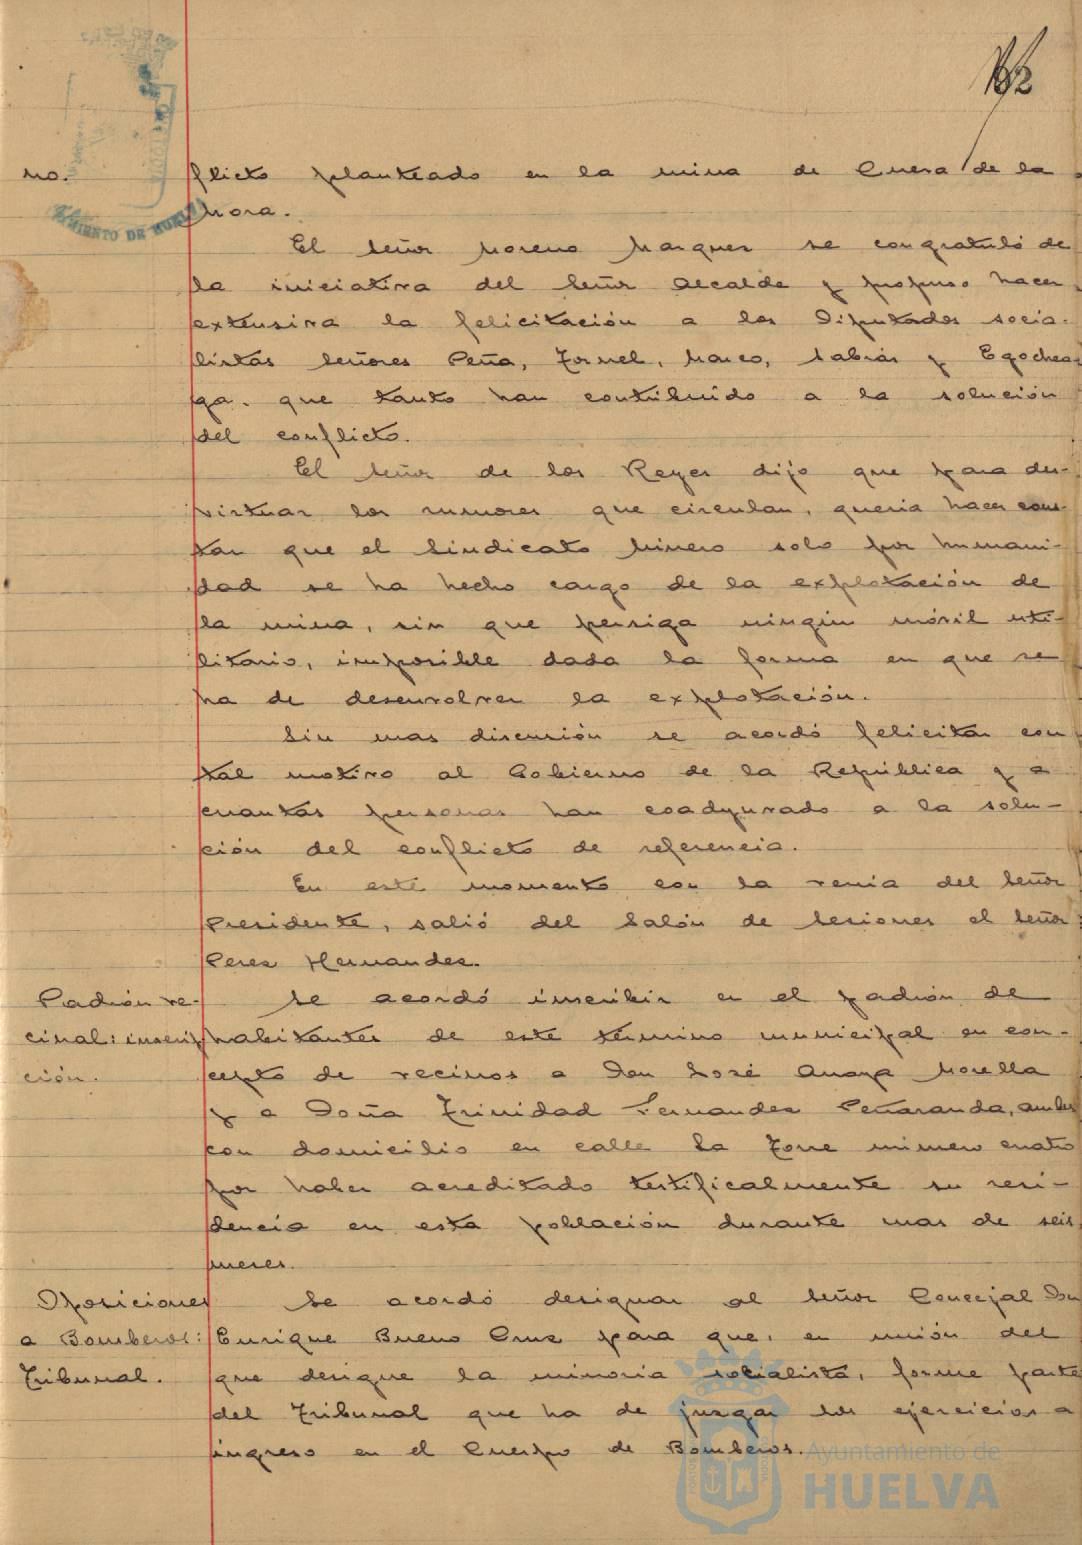 162
no.
flicto planteado en la mina de Cueva de la
Mora.
El Señor Moreno Marquez se congratuló de
la iniciativa del Señor Alcalde y propuso hacer
extensiva la felicitación a los Diputados socia-
listas Señores Peña, Tornel, Marco, Sabrás y Egochea-
ga. que tanto han contribuido a la solución
del conflicto.
El Señor de los Reyes dijo que para des-
virtuar los rumores que circulan, queria hacer cons-
tar que el Sindicato Minero solo por humani-
dad se ha hecho cargo de la explotación de
la mina, sin que persiga ningún móvil uti-
litario, imposible dada la forma en que se
ha de desenvolver la explotación.
Sin mas discusión se acordó felicitar con
tal motivo al Gobierno de la República y a
cuantas personas han coadyuvado a la solu-
ción del conflicto de referencia.
En este momento con la venia del Señor
Presidente, salió del Salón de Sesiones el Señor
Perez Hernandez.
Padrón ve-
cinal: inscrip
ción.
Se acordó inscribir en el padrón de
habitantes de este término municipal en con-
cepto de vecinos a Don José Anaya Morella
y a Doña Trinidad Fernandez Peñaranda, ambos
con domicilio en calle La Torre número cuatro
por haber acreditado testificalmente su resi-
dencia en esta población durante mas de seis
meses.
Oposiciones
a Bomberos:
Tribunal.
Se acordó designar al Señor Concejal Don
Enrique Bueno Cruz para que, en unión del
que designe la minoria socialista, forme parte
del Tribunal que ha de juzgar los ejercicios a
ingreso en el Cuerpo de Bomberos.
Ayuntamiento de
HUELVA